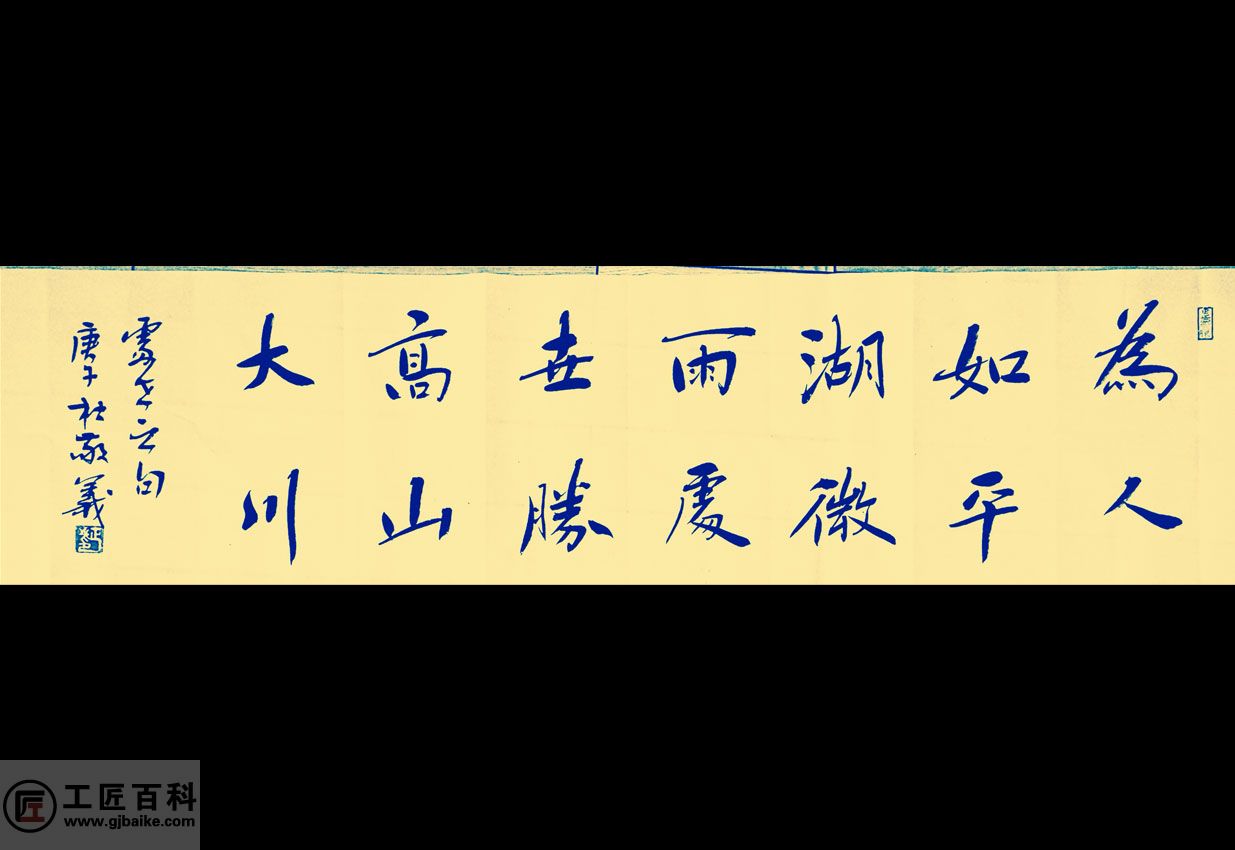 為人
如平
湖微
雨處
世勝
高山
大川
句
庚子杜敬義
工匠百科
www.gjbaike.com